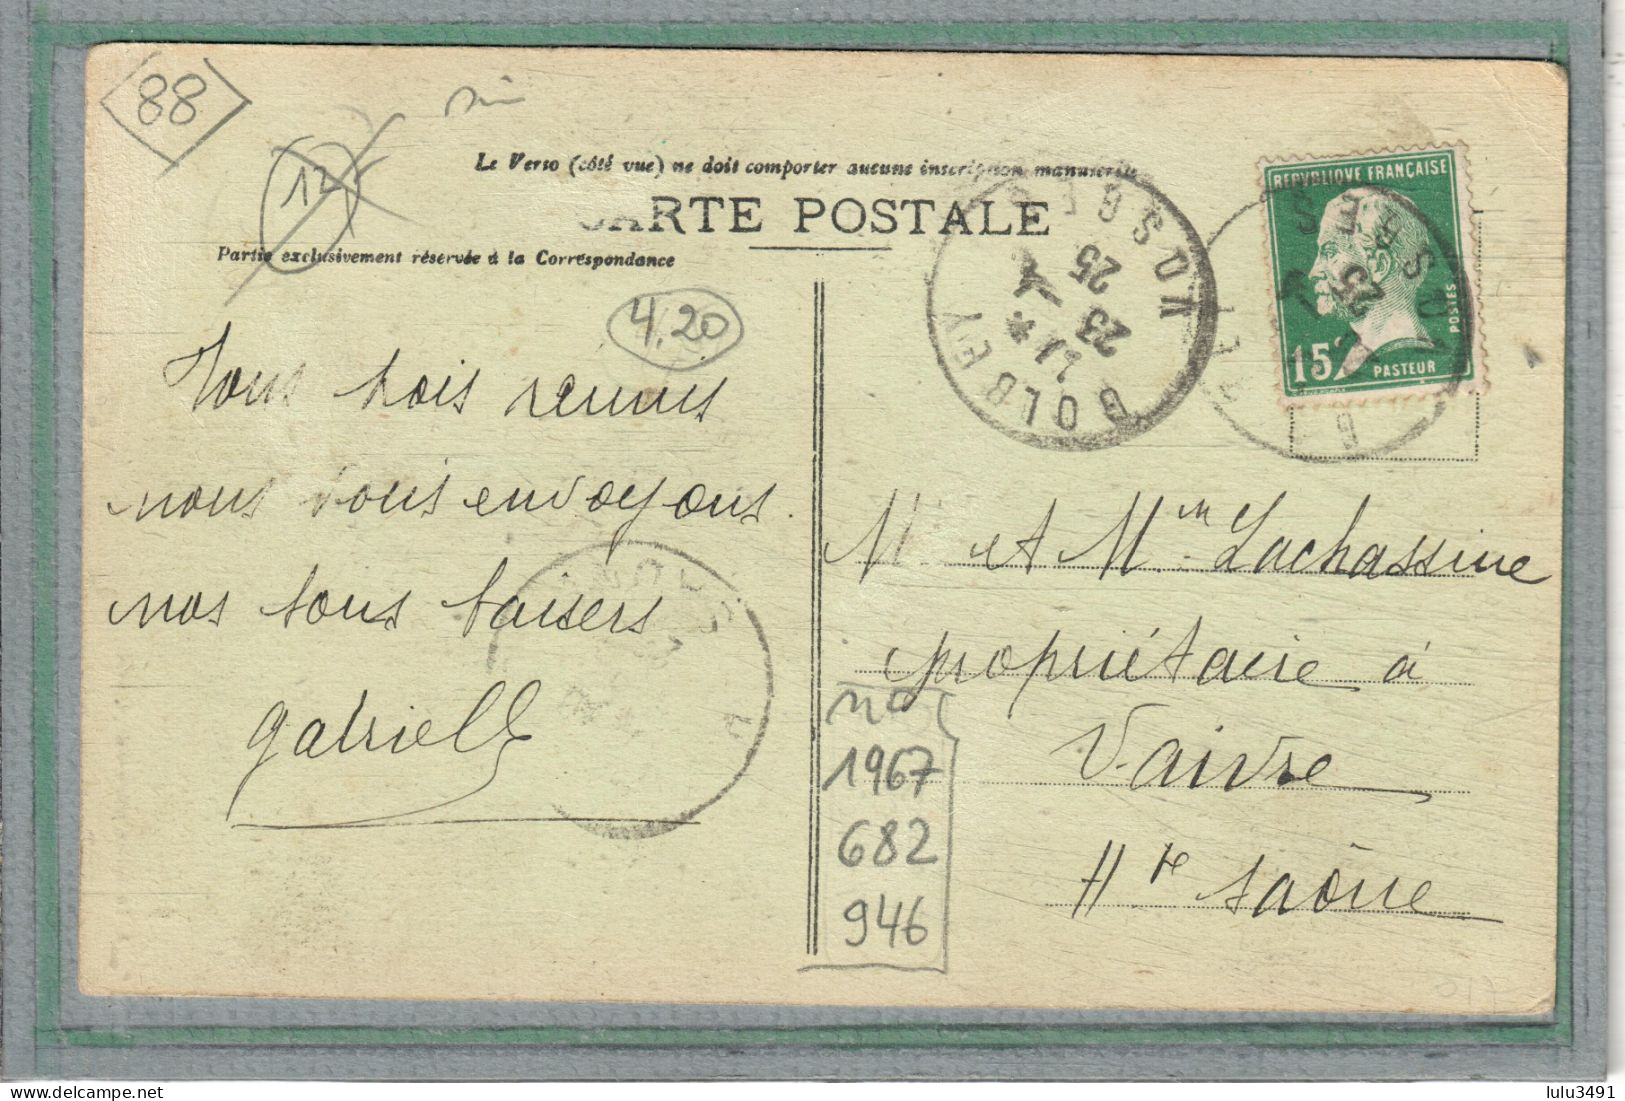 88
12
Le Verso (côté vue) ne doit comporter aucune inscription manuscrite
CARTE POSTALE
Partie exclusivement réservée à la Correspondance
4,20
Tous trois reunis
nous vous envoyons
nos tous baisers
gabrielle
GOLBEY VOSGES
23
25
REPUBLIQUE FRANÇAISE
POSTES
15c PASTEUR
M et Mme Lachassine
propriétaire à
Vaivre
Hte saône
no
1967
682
946
lulu3491